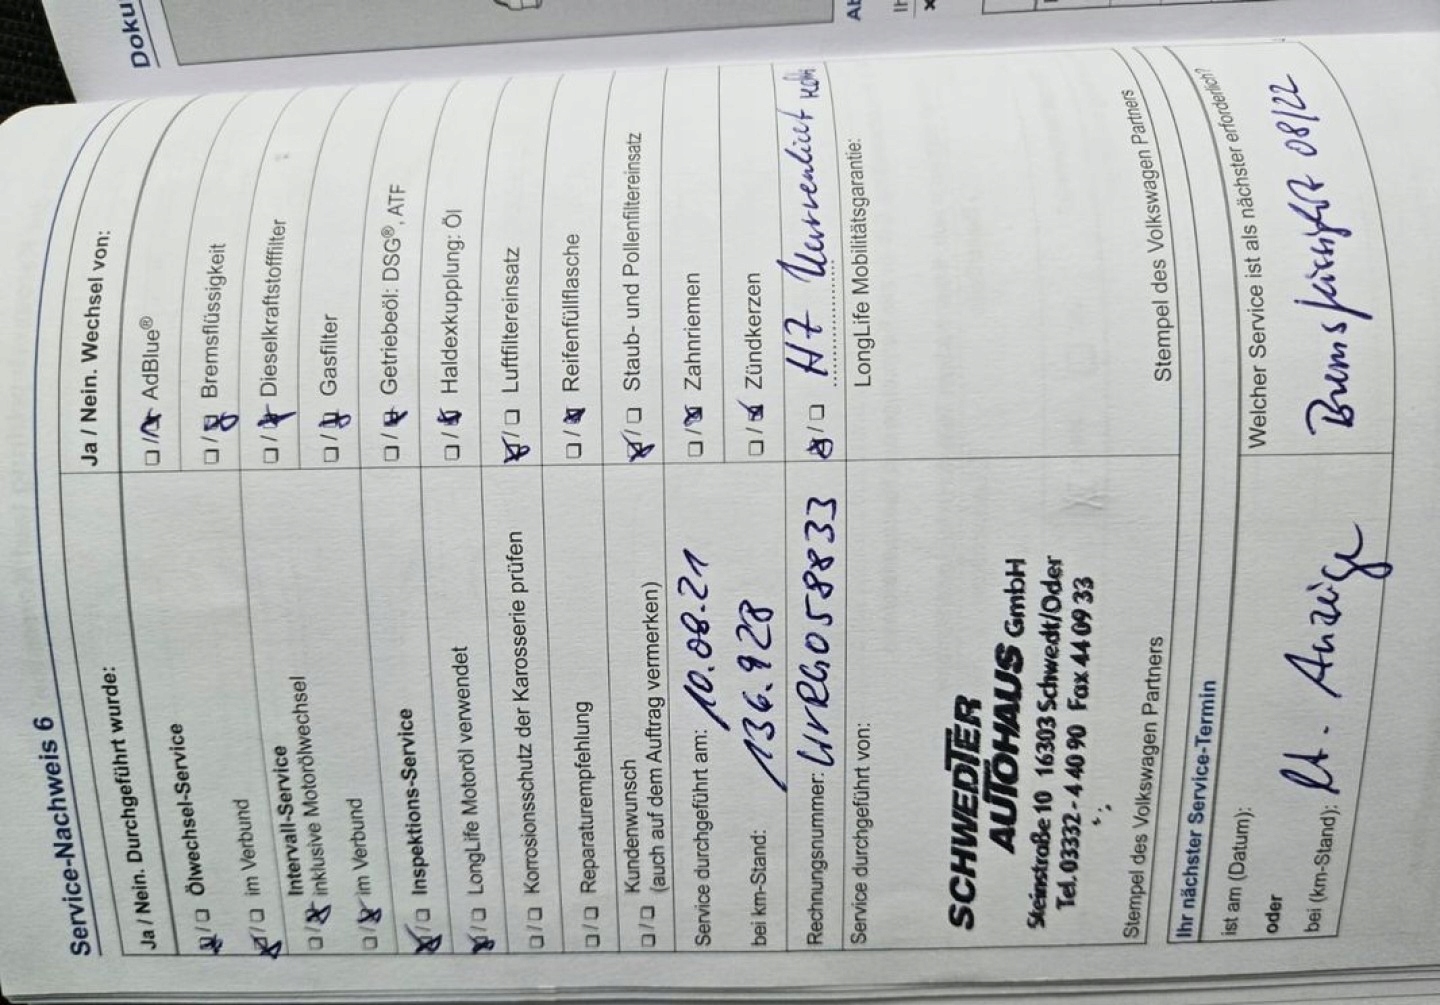 Service-Nachweis 6
Ja / Nein. Durchgeführt wurde:
Ölwechsel-Service
im Verbund
Intervall-Service
inklusive Motorölwechsel
im Verbund
Inspektions-Service
LongLife Motoröl verwendet
Korrosionsschutz der Karosserie prüfen
Reparaturempfehlung
Kundenwunsch
(auch auf dem Auftrag vermerken)
Service durchgeführt am: 10.08.21
bei km-Stand: 136.928
Rechnungsnummer: WRG058833
Service durchgeführt von:
SCHWEDTER
AUTOHAUS GmbH
Steinstraße 10 16303 Schwedt/Oder
Tel. 03332 - 4 40 90 Fax 44 09 33
Stempel des Volkswagen Partners
Ja / Nein. Wechsel von:
AdBlue®
Bremsflüssigkeit
Dieselkraftstofffilter
Gasfilter
Getriebeöl: DSG®, ATF
Haldexkupplung: Öl
Luftfiltereinsatz
Reifenfüllflasche
Staub- und Pollenfiltereinsatz
Zahnriemen
Zündkerzen
H7 Kurvenlicht
LongLife Mobilitätsgarantie:
Stempel des Volkswagen Partners
Ihr nächster Service-Termin
ist am (Datum):
oder
bei (km-Stand): lt. Anzeige
Welcher Service ist als nächster erforderlich?
Bremsflüssigkeit 08/22
Doku